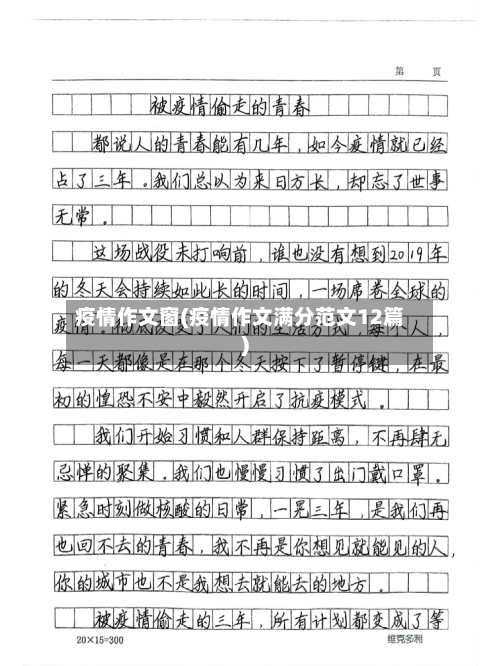 第 页
被疫情偷走的青春
都说人的青春能有几年，如今疫情就已经
占了三年。我们总以为来日方长，却忘了世事
无常。
这场战役未打响前，谁也没有想到2019年
的冬天会持续如此长的时间，一场席卷全球的
疫情作文窗(疫情作文满分范文12篇
)
疫情。彻底改变了人们的生活方式，每个人，
每一天都像是在那个冬天按下了暂停键，在最
初的惶恐不安中毅然开启了抗疫模式。
我们开始习惯和人群保持距离，不再肆无
忌惮的聚集。我们也慢慢习惯了出门戴口罩。
紧急时刻做核酸的日常，一晃三年，是我们再
也回不去的青春，我不再是你想见就能见的人，
你的城市也不是我想去就能去的地方。
被疫情偷走的三年，所有计划都变成了等
20×15=300
维克多利